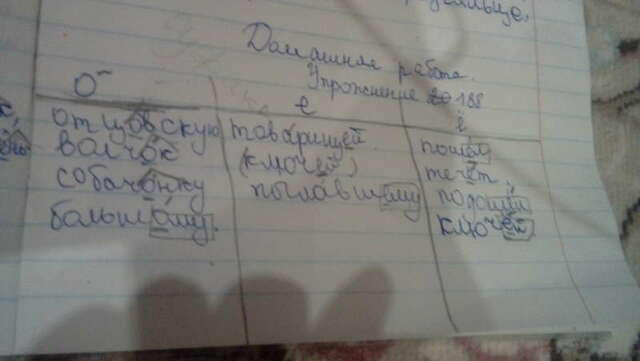 Домашняя работа.
Упражнение 188
о е ё
отцовскую товарищей пошёл
волчок (ключей) течёт
собачонку пылавшему подошёл
большому. ключей